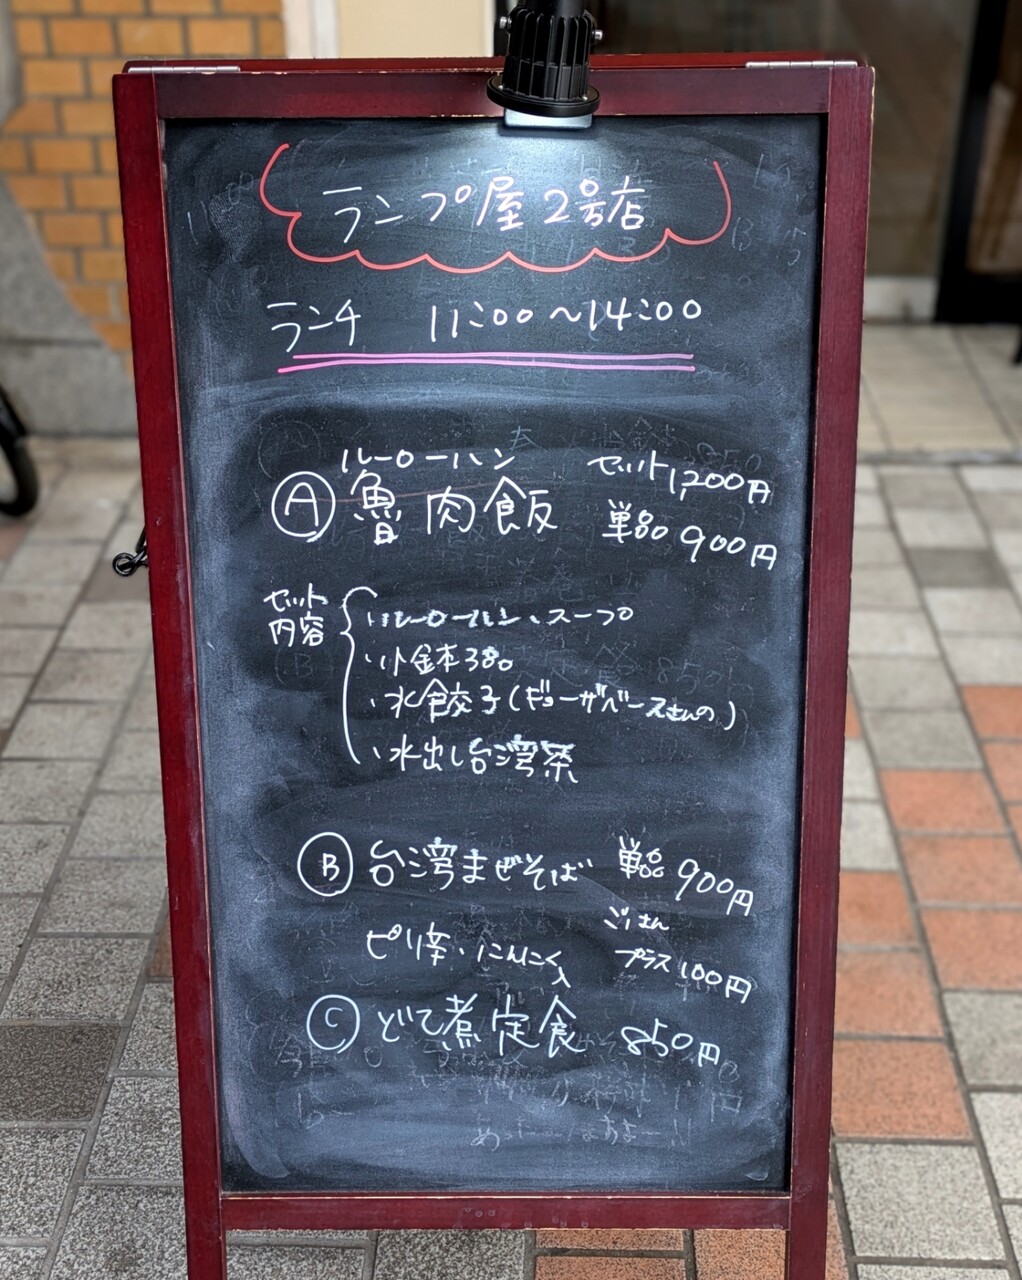 ランプ屋 2号店
ランチ 11:00～14:00
ルーローハン
Ⓐ 魯肉飯 セット1,200円
単品 900円
セット内容
・ルーローハン ・スープ
・小鉢3つ
・水餃子(ギョーザベースさんの)
・水出し台湾茶
Ⓑ 台湾まぜそば 単品 900円
ピリ辛・にんにく入
ごはんプラス100円
Ⓒ どて煮定食 850円